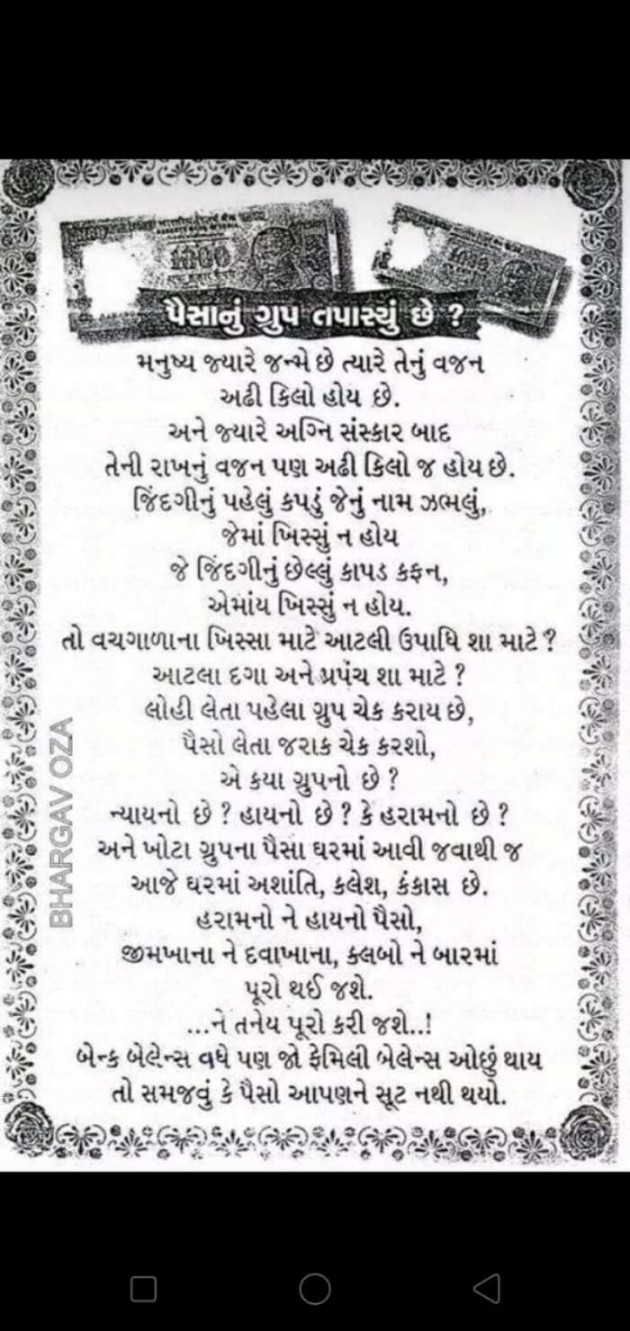 1000
1000
પૈસાનું ગ્રુપ તપાસ્યું છે ?
મનુષ્ય જ્યારે જન્મે છે ત્યારે તેનું વજન
અઢી કિલો હોય છે.
અને જ્યારે અગ્નિ સંસ્કાર બાદ
તેની રાખનું વજન પણ અઢી કિલો જ હોય છે.
જિંદગીનું પહેલું કપડું જેનું નામ ઝભલું,
જેમાં ખિસ્સું ન હોય
જે જિંદગીનું છેલ્લું કાપડ કફન,
એમાંય ખિસ્સું ન હોય.
તો વચગાળાના ખિસ્સા માટે આટલી ઉપાધિ શા માટે ?
આટલા દગા અને પ્રપંચ શા માટે ?
લોહી લેતા પહેલા ગ્રુપ ચેક કરાય છે,
પૈસો લેતા જરાક ચેક કરશો,
એ કયા ગ્રુપનો છે ?
ન્યાયનો છે ? હાયનો છે ? કે હરામનો છે ?
અને ખોટા ગ્રુપના પૈસા ઘરમાં આવી જવાથી જ
આજે ઘરમાં અશાંતિ, કલેશ, કંકાસ છે.
હરામનો ને હાયનો પૈસો,
જીમખાના ને દવાખાના, ક્લબો ને બારમાં
પૂરો થઈ જશે.
...ને તનેય પૂરો કરી જશે..!
બેન્ક બેલેન્સ વધે પણ જો ફેમિલી બેલેન્સ ઓછું થાય
તો સમજવું કે પૈસો આપણને સૂટ નથી થયો.
BHARGAV OZA